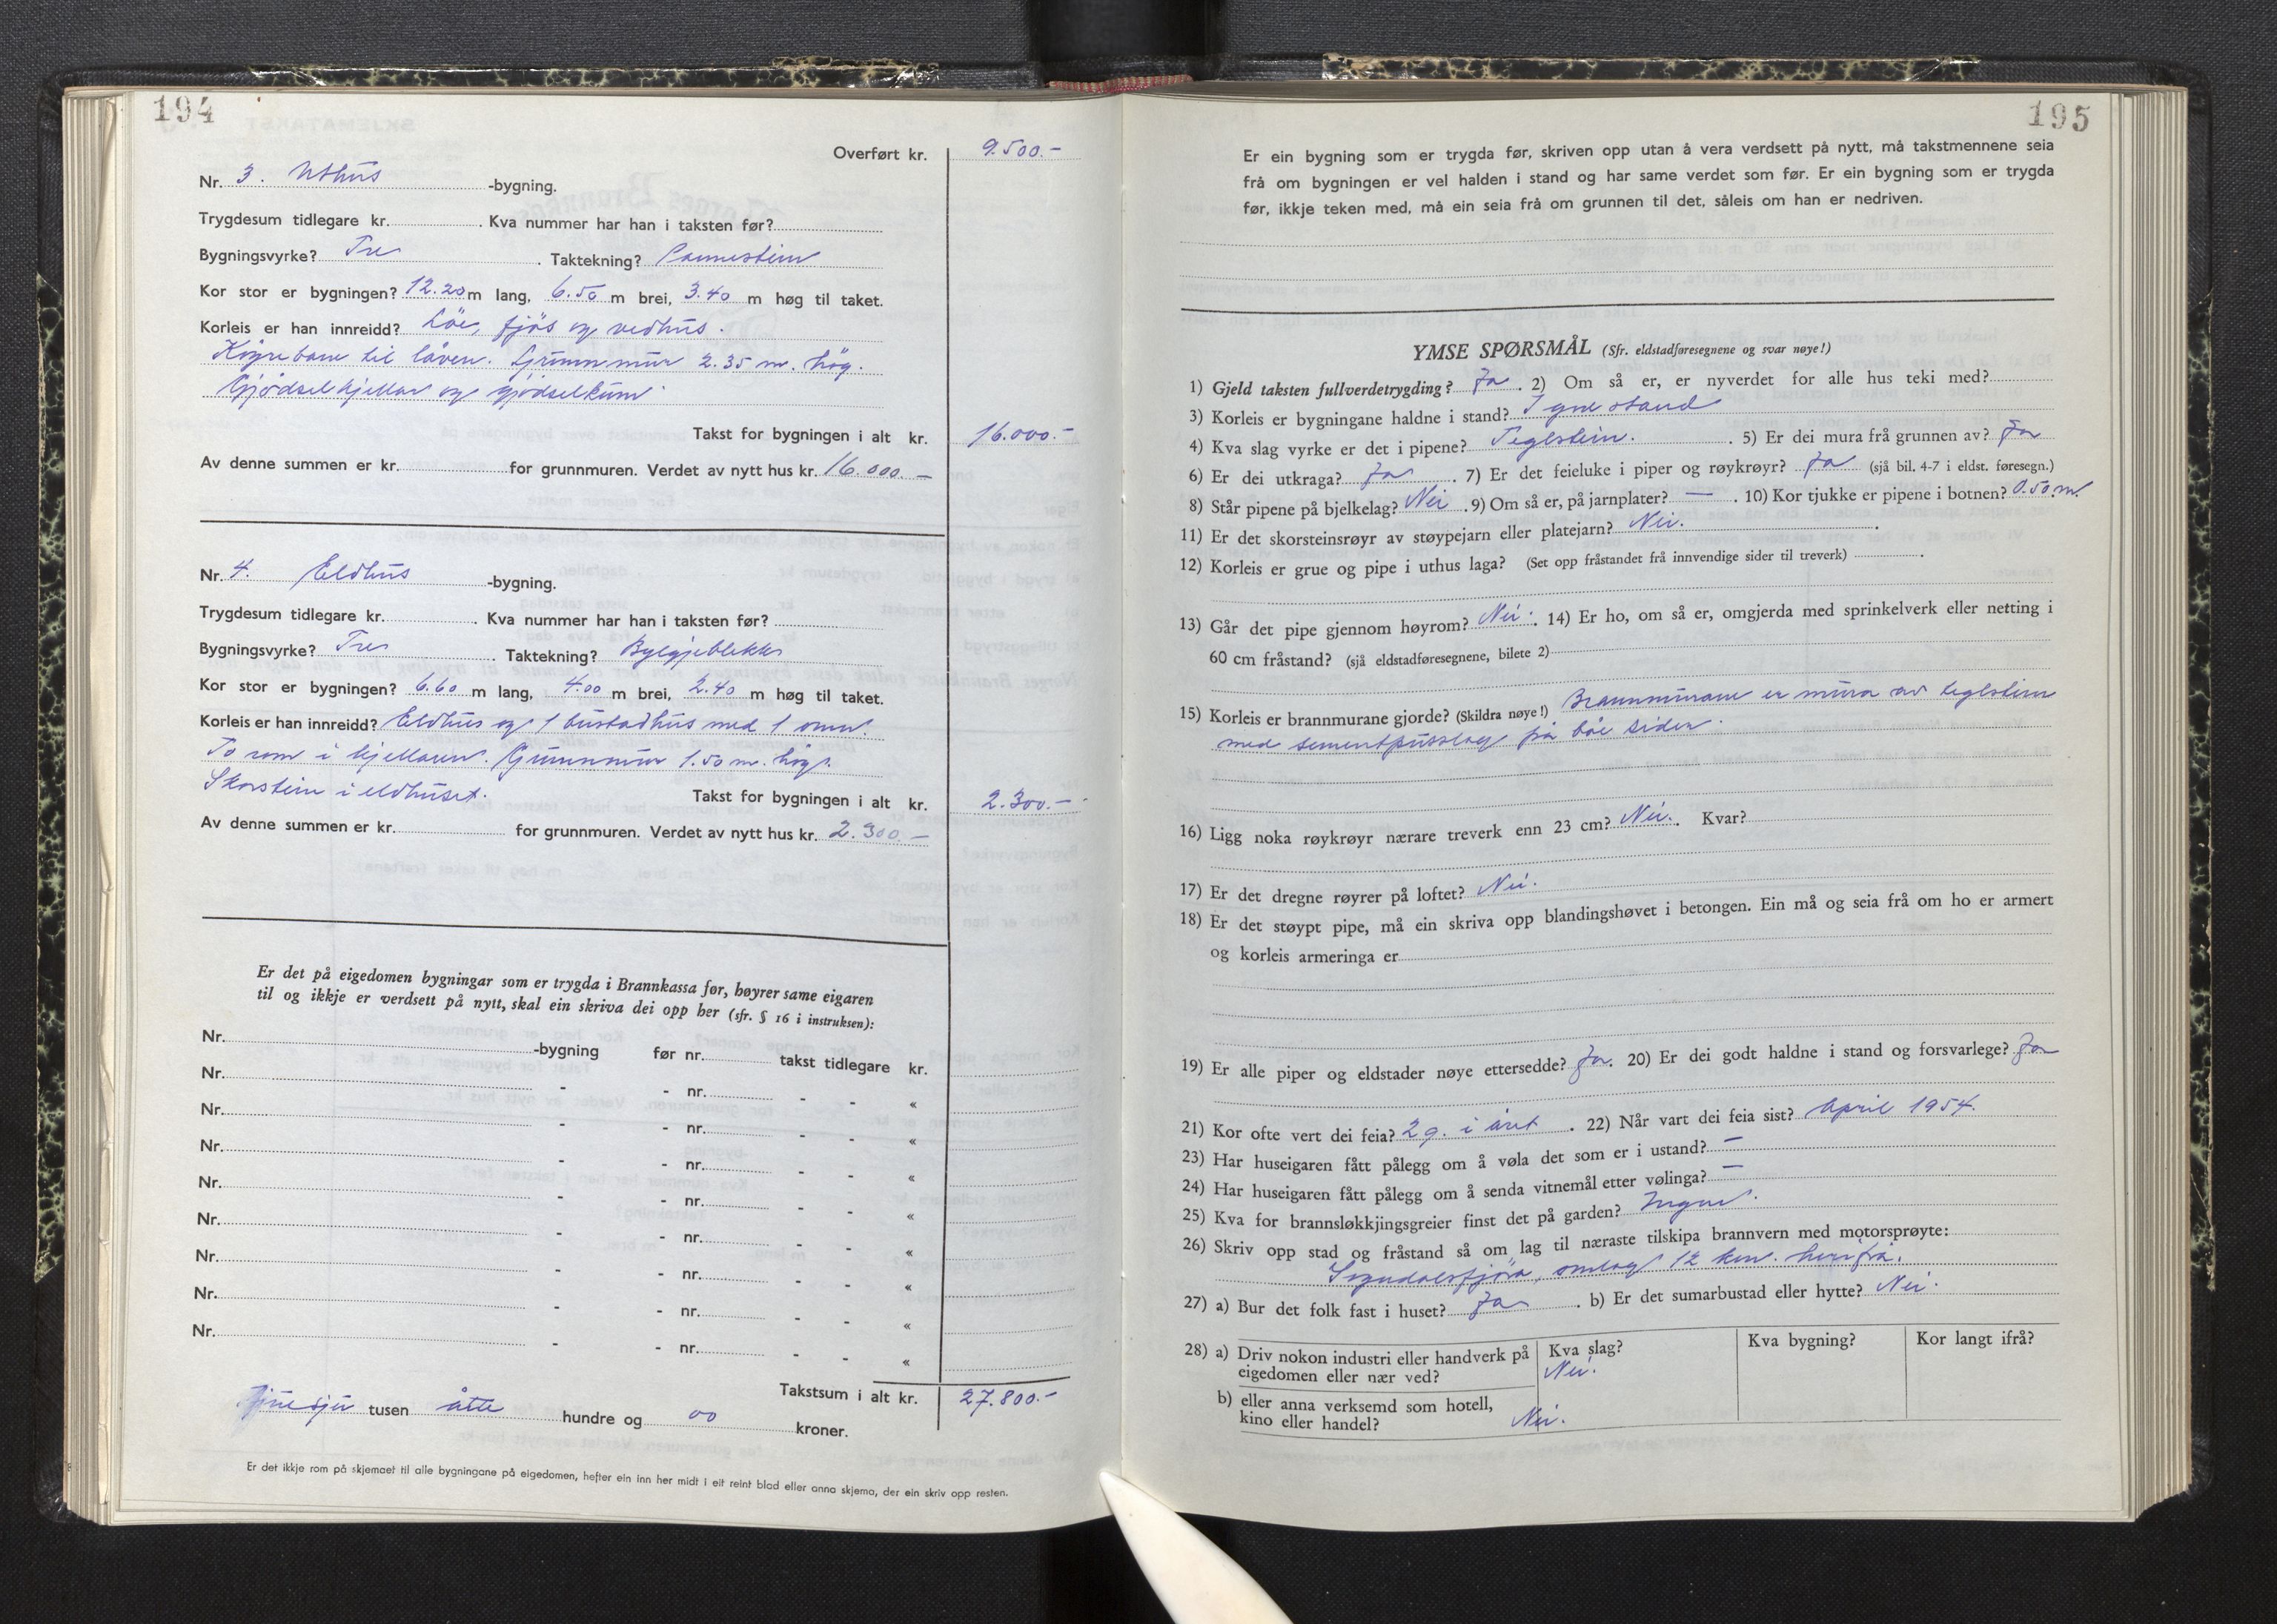 194
Overført kr. 9.500.-
Nr. 3. Uthus -bygning.
Trygdesum tidlegare kr. . Kva nummer har han i taksten før?
Bygningsvyrke? Tre . Taktekning? Pannestein
Kor stor er bygningen? 12.20 m lang, 6.50 m brei, 3.40 m høg til taket.
Korleis er han innreidd? Löe, fjös og vedhus.
Köyrebane til låven. Grunnmur 2.35 m. høg.
Gjödselkjellar og gjödselkum
Takst for bygningen i alt kr. 16.000.-
Av denne summen er kr. for grunnmuren. Verdet av nytt hus kr. 16.000.-
Nr. 4. Eldhus -bygning.
Trygdesum tidlegare kr. . Kva nummer har han i taksten før?
Bygningsvyrke? Tre . Taktekning? Bylgjeblekk
Kor stor er bygningen? 6.60 m lang, 4.00 m brei, 2.40 m høg til taket.
Korleis er han innreidd? Eldhus og 1 bustadhus med 1 omn.
To rom i kjellaren. Grunnmur 1.50 m. høg.
Skorstein i eldhuset.
Takst for bygningen i alt kr. 2.300.-
Av denne summen er kr. for grunnmuren. Verdet av nytt hus kr. 2.300.-
Er det på eigedomen bygningar som er trygda i Brannkassa før, høyrer same eigaren
til og ikkje er verdsett på nytt, skal ein skriva dei opp her (sfr. § 16 i instruksen):
Nr. -bygning før nr. takst tidlegare kr.
Nr. - - nr. - - «
Nr. - - nr. - - «
Nr. - - nr. - - «
Nr. - - nr. - - «
Nr. - - nr. - - «
Nr. - - nr. - - «
Nr. - - nr. - - «
Nr. - - nr. - - «
Takstsum i alt kr. 27.800.-
Tjuesju tusen åtte hundre og 00 kroner.
Er det ikkje rom på skjemaet til alle bygningane på eigedomen, hefter ein inn her midt i eit reint blad eller anna skjema, der ein skriv opp resten.
195
Er ein bygning som er trygda før, skriven opp utan å vera verdsett på nytt, må takstmennene seia
frå om bygningen er vel halden i stand og har same verdet som før. Er ein bygning som er trygda
før, ikkje teken med, må ein seia frå om grunnen til det, såleis om han er nedriven.
YMSE SPØRSMÅL (Sfr. eldstadføresegnene og svar nøye!)
1) Gjeld taksten fullverdetrygding? Ja . 2) Om så er, er nyverdet for alle hus teki med?
3) Korleis er bygningane haldne i stand? I gne stand
4) Kva slag vyrke er det i pipene? Teglstein. . 5) Er dei mura frå grunnen av? Ja
6) Er dei utkraga? Ja . 7) Er det feieluke i piper og røykrøyr? Ja (sjå bil. 4-7 i eldst. føresegn.)
8) Står pipene på bjelkelag? Nei . 9) Om så er, på jarnplater? — . 10) Kor tjukke er pipene i botnen? 0.50 m.
11) Er det skorsteinsrøyr av støypejarn eller platejarn? Nei. .
12) Korleis er grue og pipe i uthus laga? (Set opp fråstandet frå innvendige sider til treverk) .
13) Går det pipe gjennom høyrom? Nei. . 14) Er ho, om så er, omgjerda med sprinkelverk eller netting i
60 cm fråstand? (sjå eldstadføresegnene, bilete 2)
15) Korleis er brannmurane gjorde? (Skildra nøye!) Brannmurane er mura av teglstein
med sementpusslag på båe sider.
16) Ligg noka røykrøyr nærare treverk enn 23 cm? Nei. . Kvar?
17) Er det dregne røyrer på loftet? Nei.
18) Er det støypt pipe, må ein skriva opp blandingshøvet i betongen. Ein må og seia frå om ho er armert
og korleis armeringa er
19) Er alle piper og eldstader nøye ettersedde? Ja. 20) Er dei godt haldne i stand og forsvarlege? Ja
21) Kor ofte vert dei feia? 2 g. i året . 22) Når vart dei feia sist? April 1954.
23) Har huseigaren fått pålegg om å vøla det som er i ustand? —
24) Har huseigaren fått pålegg om å senda vitnemål etter vølinga? —
25) Kva for brannsløkkjingsgreier finst det på garden? Ingen.
26) Skriv opp stad og fråstand så om lag til næraste tilskipa brannvern med motorsprøyte:
Sogndalsfjöra, omlag 12 km. herifrå.
27) a) Bur det folk fast i huset? Ja . b) Er det sumarbustad eller hytte? Nei.
28) a) Driv nokon industri eller handverk på eigedomen eller nær ved? Kva slag? Nei. Kva bygning? Kor langt ifrå?
b) eller anna verksemd som hotell, kino eller handel? Nei.